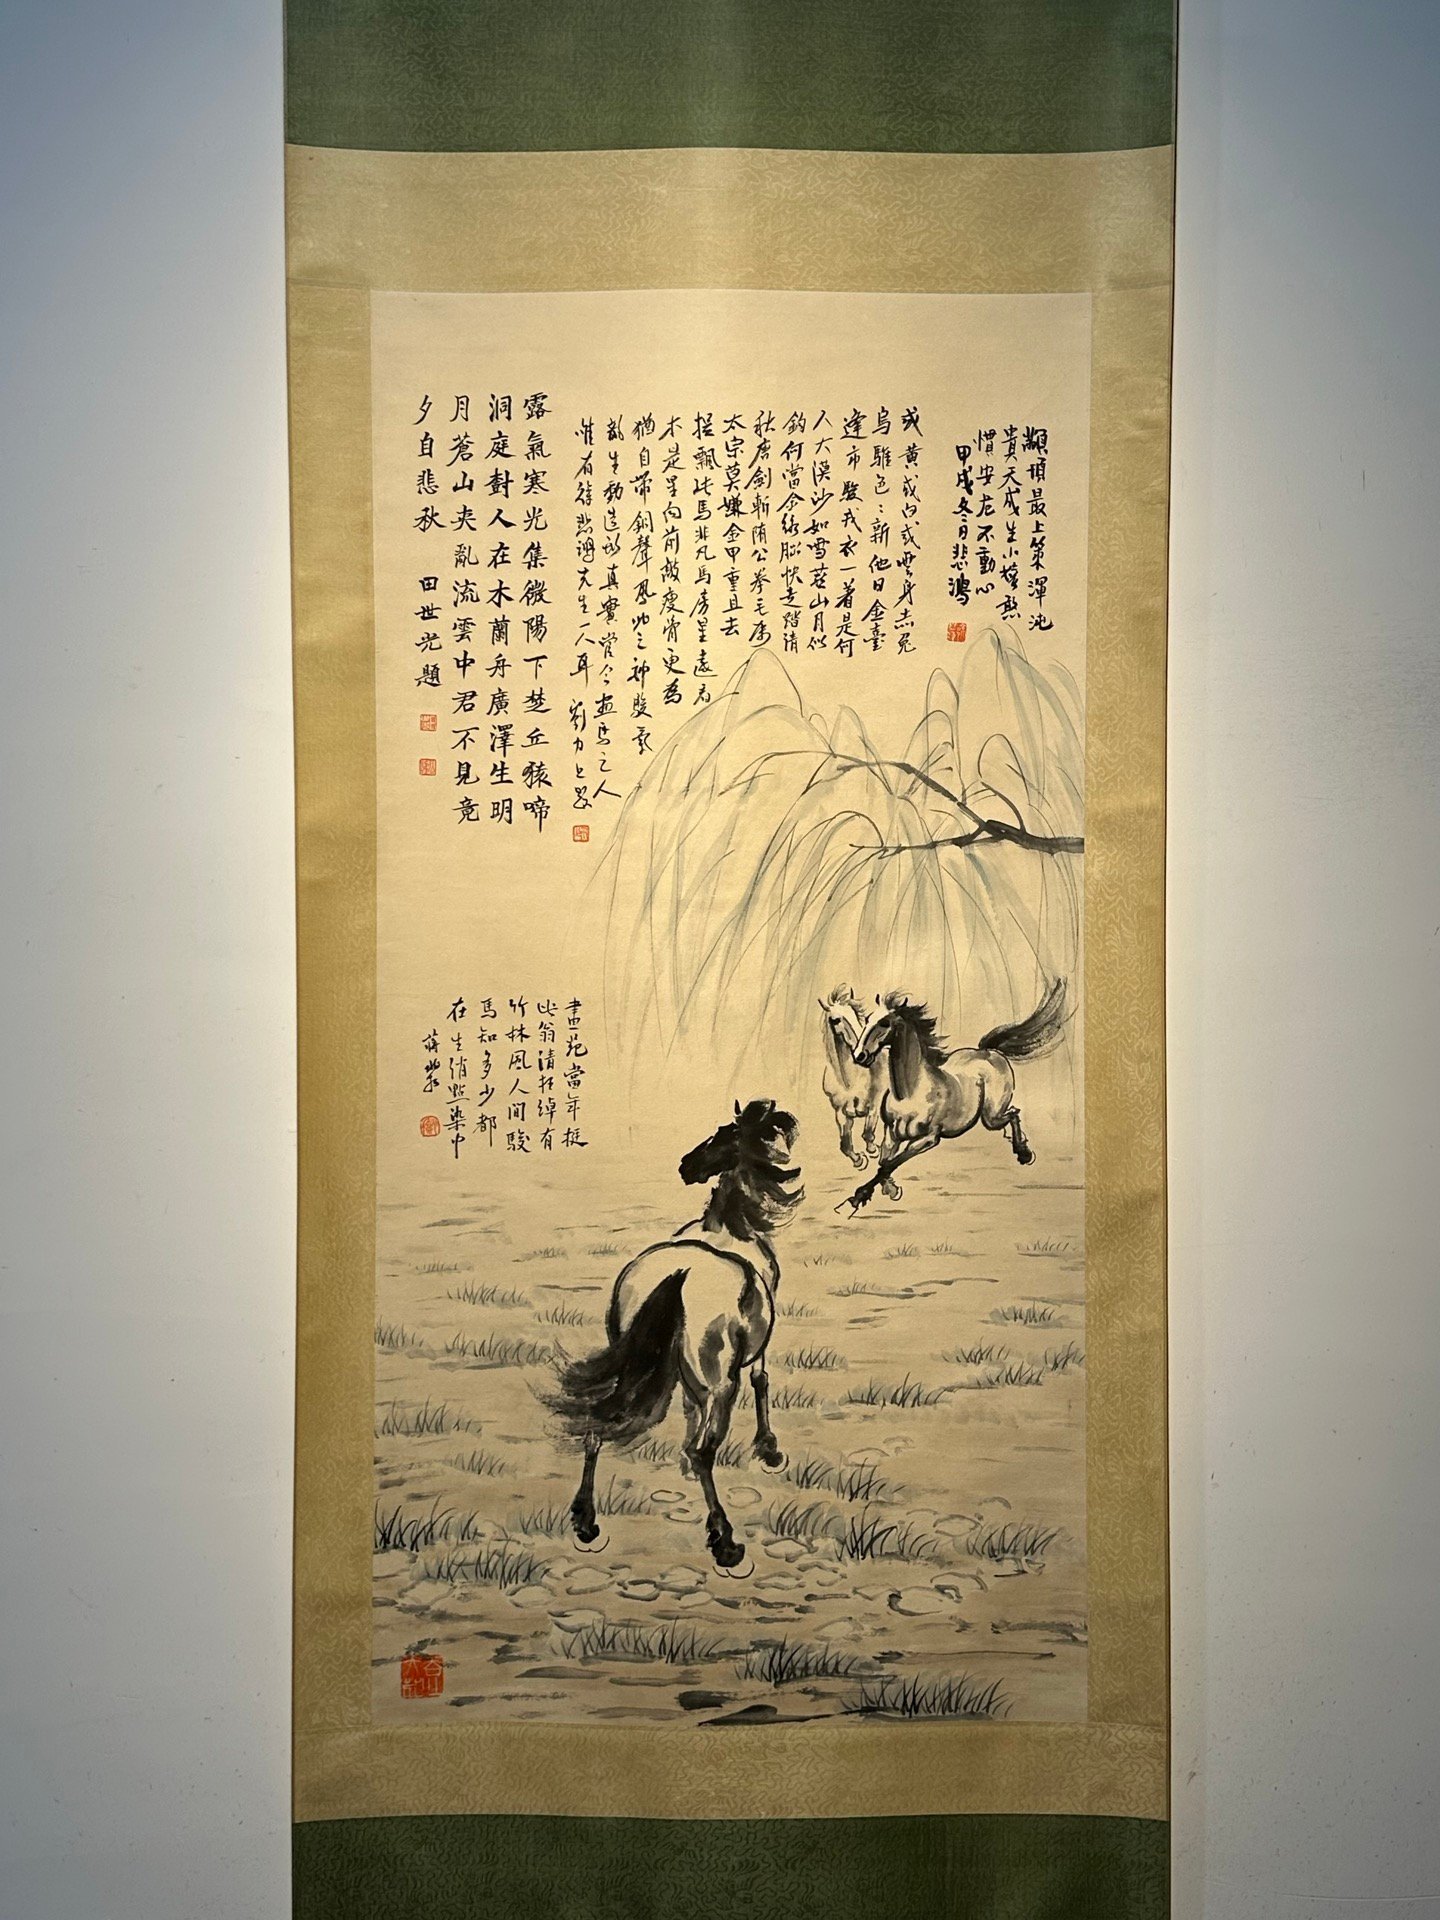 顢頇最上策渾沌
貴天成生小蓬憨
慣安左不動心
甲戌冬日悲鴻
或黃或白或雲身赤兔
烏騅色〻新他日金臺
逢市駿戎衣一著是何
人大漠沙如雪燕山月似
鈎何當金絡腦快走踏清
秋唐劍斬隋公拳毛屬
太宗莫嫌金甲重且去
捉飄此馬非凡馬房星遠看
本是星向前敲瘦骨更為
猶自帶銅聲馬心之神駿氣
韻生動造形真實當今畫馬之人
唯有徐悲鴻先生一人耳 劉力上題
露氣寒光集微陽下楚丘猿啼
洞庭樹人在木蘭舟廣澤生明
月蒼山夾亂流雲中君不見竟
夕自悲秋 田世光題
畫苑當年挺
此翁清狂綽有
竹林風人間駿
馬知多少都
在生綃點染中
蔣兆和